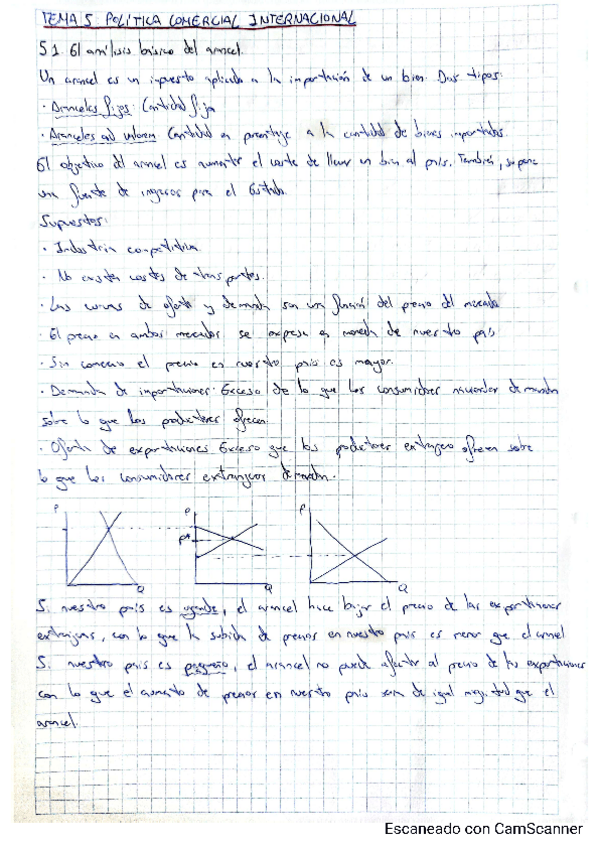 TEMA 5 POLÍTICA COMERCIAL INTERNACIONAL
5.1 El análisis básico del arancel.
Un arancel es un impuesto aplicado a la importación de un bien. Dos tipos:
· Aranceles fijos: Cantidad fija
· Aranceles ad valorem Cantidad en porcentaje a la cantidad de bienes importados.
El objetivo del arancel es aumentar el coste de llevar un bien al país. También, supone
una fuente de ingresos para el Estado.
Supuestos:
· Industria competitiva
· No existen costes de transportes.
· Las curvas de oferta y demanda son una función del precio del mercado
· El precio en ambos mercados se expresa en moneda de nuestro país
· Sin comercio el precio en nuestro país es mayor.
· Demanda de importaciones: Exceso de lo que los consumidores demandan
sobre lo que los productores ofrecen.
· Oferta de exportaciones Exceso que los productores extranjeros ofrecen sobre
lo que los consumidores extranjeros demandan.
P P P
PM
Q Q Q
Si nuestro país es grande, el arancel hace bajar el precio de las exportaciones
extranjeras, con lo que la subida de precios en nuestro país es menor que el arancel
Si nuestro país es pequeño, el arancel no puede afectar al precio de las exportaciones
con lo que el aumento de precios en nuestro país son de igual magnitud que el
arancel.
Escaneado con CamScanner